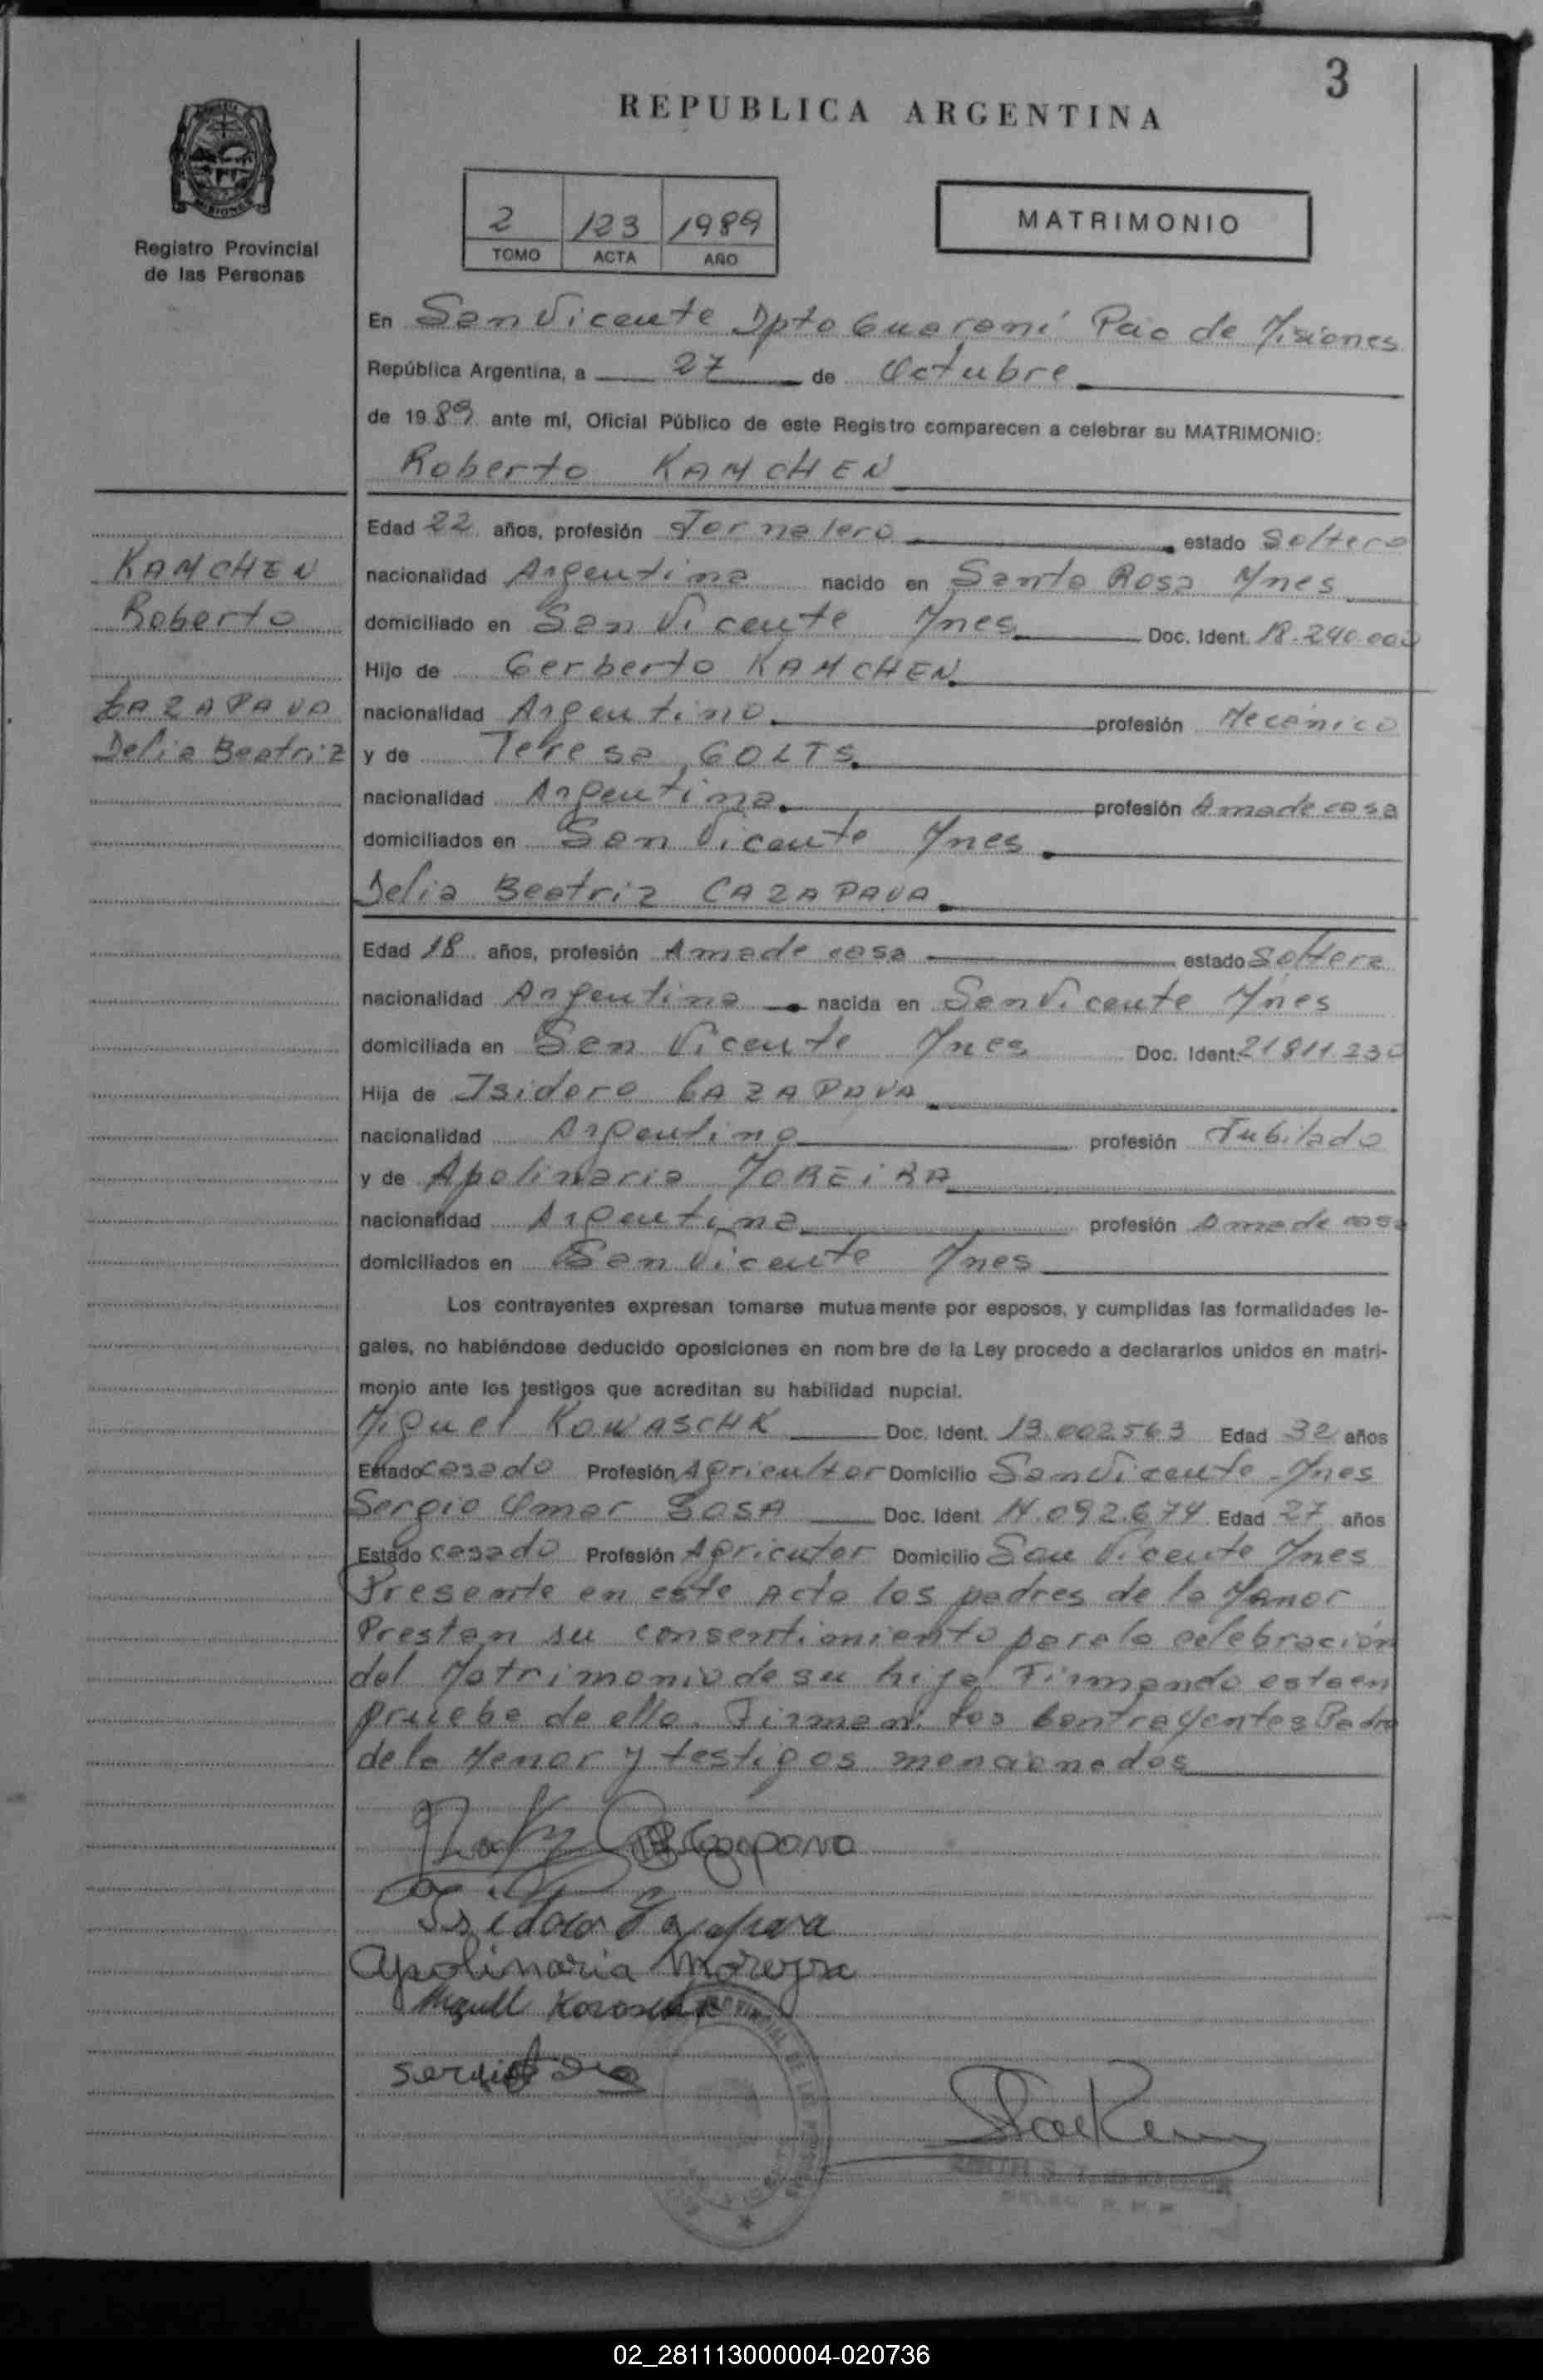 3
REPUBLICA ARGENTINA
MISIONES
Registro Provincial
de las Personas
2 123 1989
TOMO ACTA AÑO
MATRIMONIO
En San Vicente Dpto Guaraní Pcio de Misiones
República Argentina, a 27 de Octubre
de 1989 ante mí, Oficial Público de este Registro comparecen a celebrar su MATRIMONIO:
Roberto KAMCHEN
KAMCHEN
Roberto
CAZAPAVA
Delia Beatriz
Edad 22 años, profesión Jornalero estado Soltero
nacionalidad Argentina nacido en Santa Rosa Mnes
domiciliado en San Vicente Mnes Doc. Ident. 18.240.003
Hijo de Gerberto KAMCHEN
nacionalidad Argentino profesión Mecánico
y de Teresa GOLTS
nacionalidad Argentina profesión Ama de casa
domiciliados en San Vicente Mnes
Delia Beatriz CAZAPAVA
Edad 18 años, profesión Ama de casa estado Soltera
nacionalidad Argentina nacida en San Vicente Mnes
domiciliada en San Vicente Mnes Doc. Ident. 21811.230
Hija de Isidoro CAZAPAVA
nacionalidad Argentino profesión Jubilado
y de Apolinaria MOREIRA
nacionalidad Argentina profesión Ama de casa
domiciliados en San Vicente Mnes
Los contrayentes expresan tomarse mutuamente por esposos, y cumplidas las formalidades le-
gales, no habiéndose deducido oposiciones en nombre de la Ley procedo a declararlos unidos en matri-
monio ante los testigos que acreditan su habilidad nupcial.
Miguel KOWASCHK Doc. Ident. 13.002.563 Edad 32 años
Estado casado Profesión Agricultor Domicilio San Vicente Mnes
Sergio Omar SOSA Doc. Ident. 14.092.674 Edad 27 años
Estado casado Profesión Agricutor Domicilio San Vicente Mnes
Presente en este Acto los padres de la Menor
Prestan su consentimiento para la celebración
del Matrimonio de su hija Firmando esta en
prueba de ello. Firman los Contrayentes Padre
de la Menor y testigos mencionados
Isidoro Cazapava
Apolinaria Moreyra
02_281113000004-020736